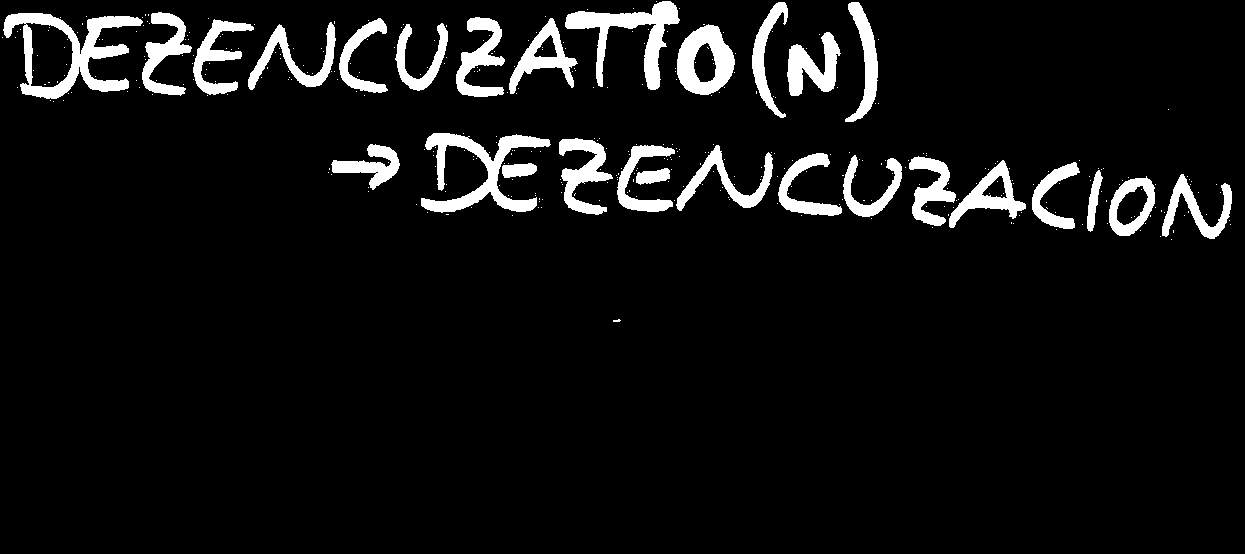 DEZENCUZATIO(N)
→ DEZENCUZACION